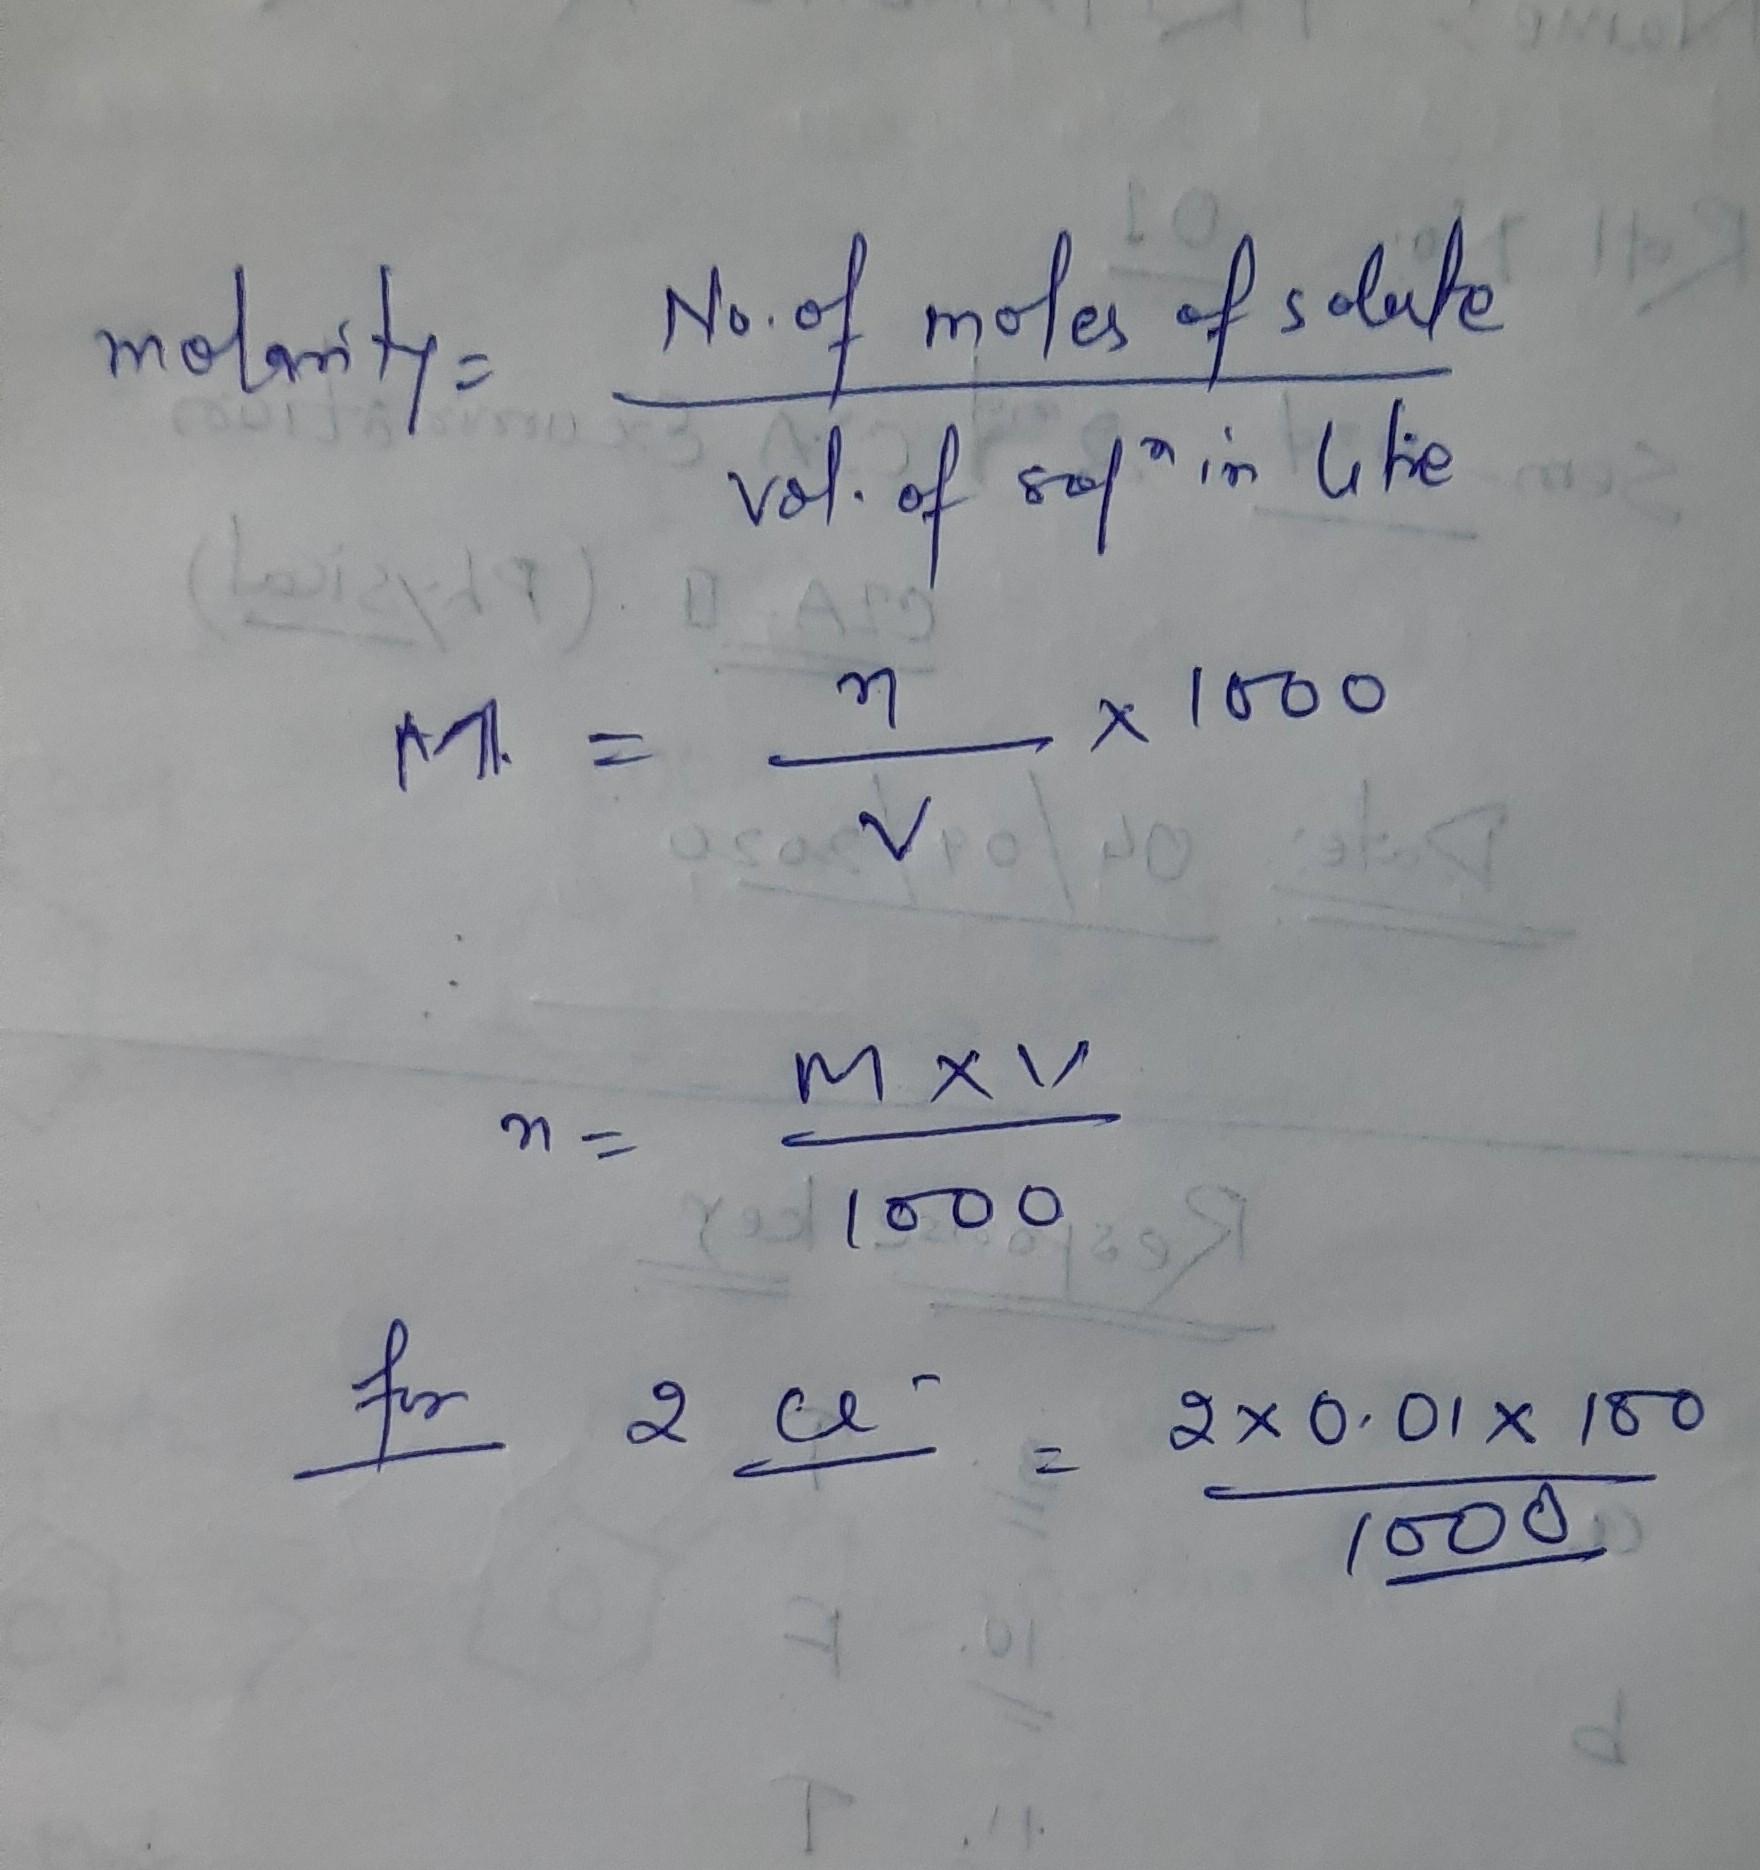 molarity = No. of moles of solute
vol. of solⁿ in litre
M = n × 1000
V
n = M × V
1000
for 2 Cl⁻ = 2 × 0.01 × 100
1000